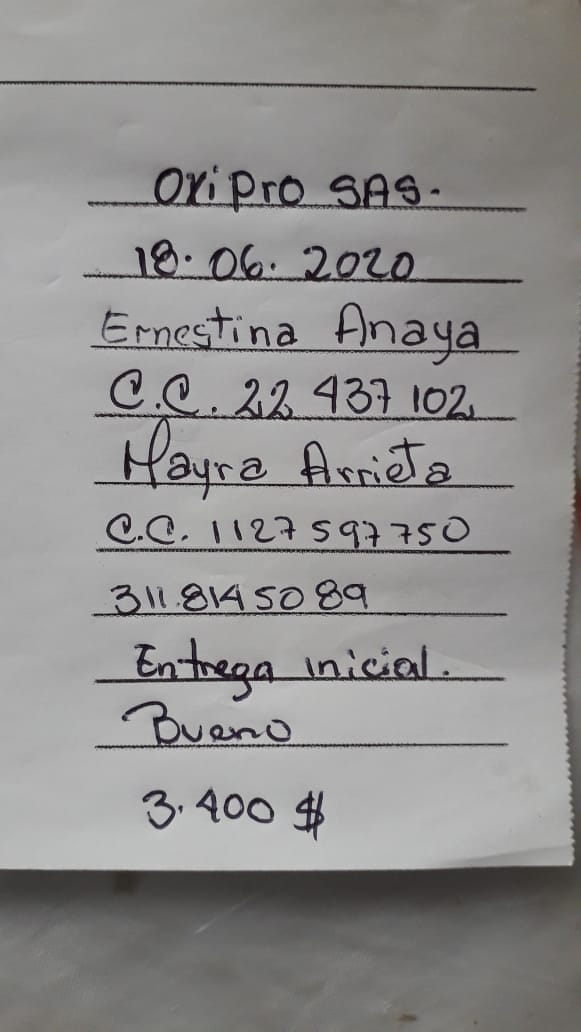 Oxipro SAS.
18.06.2020
Ernestina Anaya
C.C. 22 437 102
Mayra Arrieta
C.C. 1127 597 750
311.814 50 89
Entrega inicial.
Bueno
3.400 $